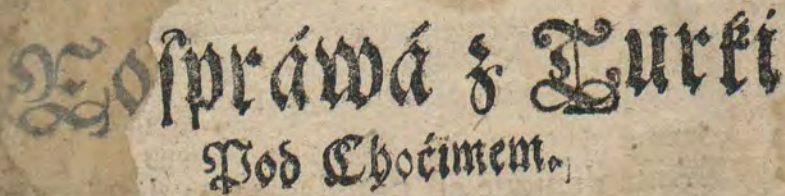 Rospráwá z Turki
Pod Choćimem.